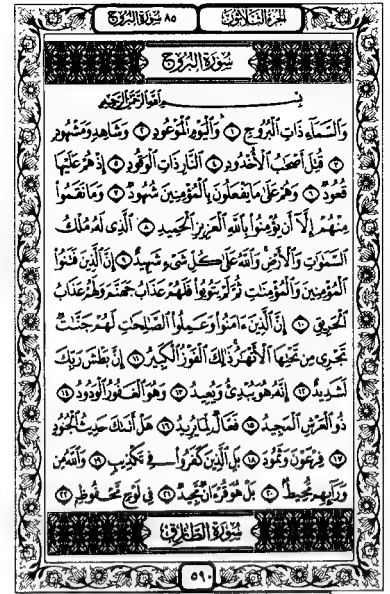 الجزء الثلاثون
٨٥ سورة البروج
سورة البروج
بسم الله الرحمن الرحيم
وَالسَّمَآءِ ذَاتِ الْبُرُوجِ ١ وَالْيَوْمِ الْمَوْعُودِ ٢ وَشَاهِدٍ وَمَشْهُودٍ
٣ قُتِلَ أَصْحَٰبُ الْأُخْدُودِ ٤ النَّارِ ذَاتِ الْوَقُودِ ٥ إِذْ هُمْ عَلَيْهَا
قُعُودٌ ٦ وَهُمْ عَلَىٰ مَا يَفْعَلُونَ بِالْمُؤْمِنِينَ شُهُودٌ ٧ وَمَا نَقَمُوا
مِنْهُمْ إِلَّا أَن يُؤْمِنُوا بِاللَّهِ الْعَزِيزِ الْحَمِيدِ ٨ الَّذِى لَهُ مُلْكُ
السَّمَٰوَٰتِ وَالْأَرْضِ وَاللَّهُ عَلَىٰ كُلِّ شَىْءٍ شَهِيدٌ ٩ إِنَّ الَّذِينَ فَتَنُوا
الْمُؤْمِنِينَ وَالْمُؤْمِنَٰتِ ثُمَّ لَمْ يَتُوبُوا فَلَهُمْ عَذَابُ جَهَنَّمَ وَلَهُمْ عَذَابُ
الْحَرِيقِ ١٠ إِنَّ الَّذِينَ ءَامَنُوا وَعَمِلُوا الصَّٰلِحَٰتِ لَهُمْ جَنَّٰتٌ
تَجْرِى مِن تَحْتِهَا الْأَنْهَٰرُ ذَٰلِكَ الْفَوْزُ الْكَبِيرُ ١١ إِنَّ بَطْشَ رَبِّكَ
لَشَدِيدٌ ١٢ إِنَّهُ هُوَ يُبْدِئُ وَيُعِيدُ ١٣ وَهُوَ الْغَفُورُ الْوَدُودُ ١٤
ذُو الْعَرْشِ الْمَجِيدُ ١٥ فَعَّالٌ لِّمَا يُرِيدُ ١٦ هَلْ أَتَىٰكَ حَدِيثُ الْجُنُودِ
١٧ فِرْعَوْنَ وَثَمُودَ ١٨ بَلِ الَّذِينَ كَفَرُوا فِى تَكْذِيبٍ ١٩ وَاللَّهُ مِن
وَرَآئِهِم مُّحِيطٌ ٢٠ بَلْ هُوَ قُرْءَانٌ مَّجِيدٌ ٢١ فِى لَوْحٍ مَّحْفُوظٍ ٢٢
سورة الطارق
٥٩٠